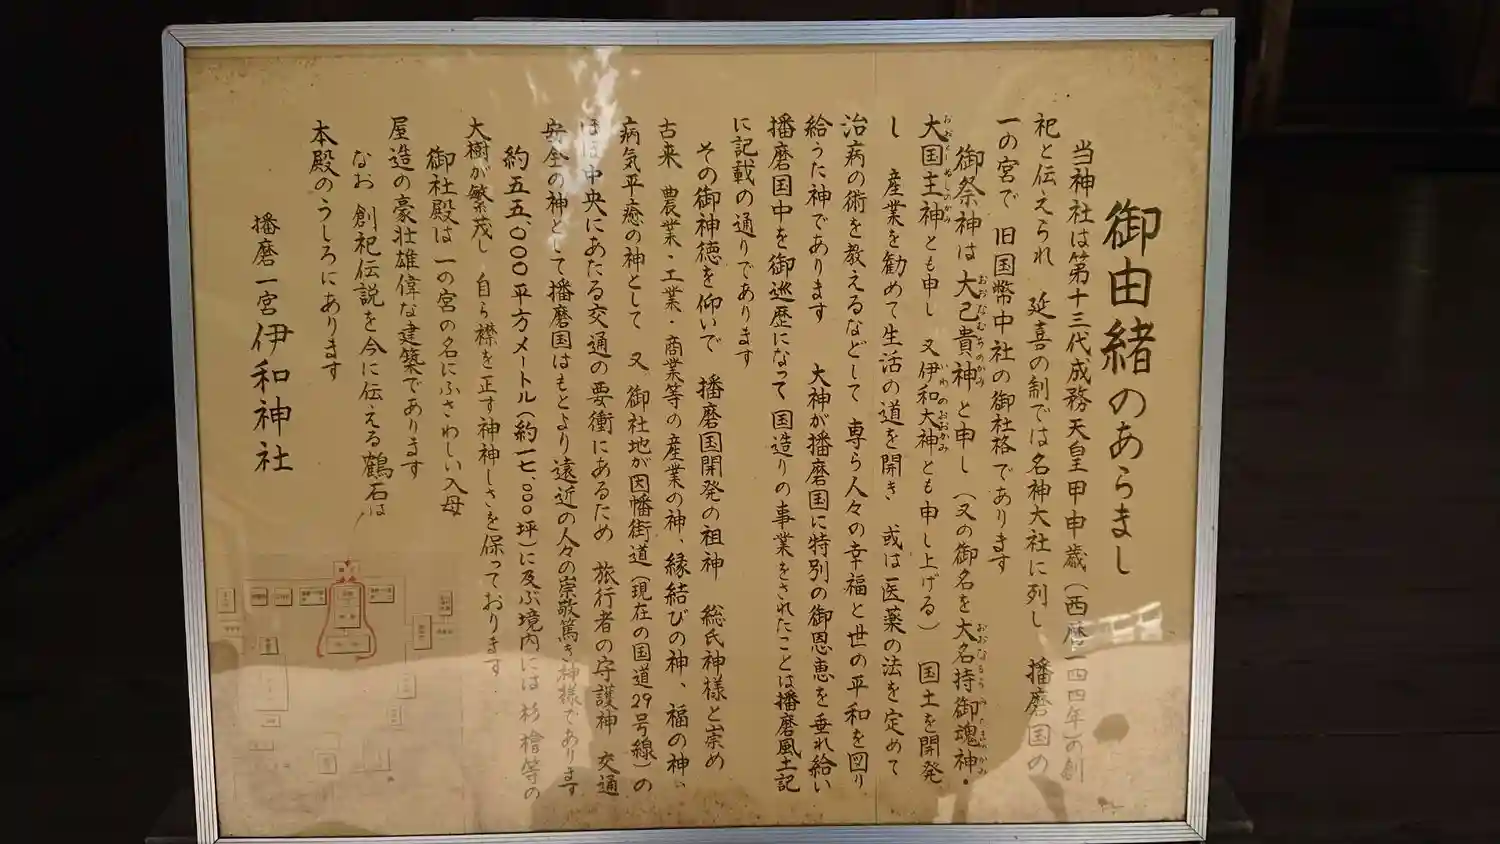 御由緒のあらまし
当神社は第十三代成務天皇甲申歳（西暦一四四年）の創
祀と伝えられ 延喜の制では名神大社に列し 播磨国の
一の宮で 旧国幣中社の御社格であります
御祭神は大己貴神と申し（又の御名を大名持御魂神・
大国主神とも申し 又伊和大神とも申し上げる） 国土を開発
し 産業を勧めて生活の道を開き 或は医薬の法を定めて
治病の術を教えるなどして 専ら人々の幸福と世の平和を図り
給うた神であります 大神が播磨国に特別の御恩恵を垂れ給い
播磨国中を御巡歴になって 国造りの事業をされたことは播磨風土記
に記載の通りであります
その御神徳を仰いで 播磨国開発の祖神 総氏神様と崇め
古来 農業・工業・商業等の産業の神、縁結びの神、福の神、
病気平癒の神として 又 御社地が因幡街道（現在の国道29号線）の
ほぼ中央にあたる交通の要衝にあるため 旅行者の守護神 交通
安全の神として播磨国はもとより遠近の人々の崇敬篤き神様であります
約五五、〇〇〇平方メートル（約一七、〇〇〇坪）に及ぶ境内には 杉 檜等の
大樹が繁茂し 自ら襟を正す神神しさを保っております
御社殿は 一の宮の名にふさわしい入母
屋造の豪壮雄偉な建築であります
なお 創祀伝説を今に伝える鶴石は
本殿のうしろにあります
播磨一宮 伊和神社